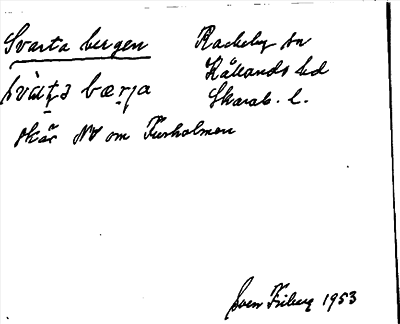 Svarta bergen
Rackeby sn
Kållands hd
Skarab. l.
skär NV om Furholmen
Sven Friberg 1953